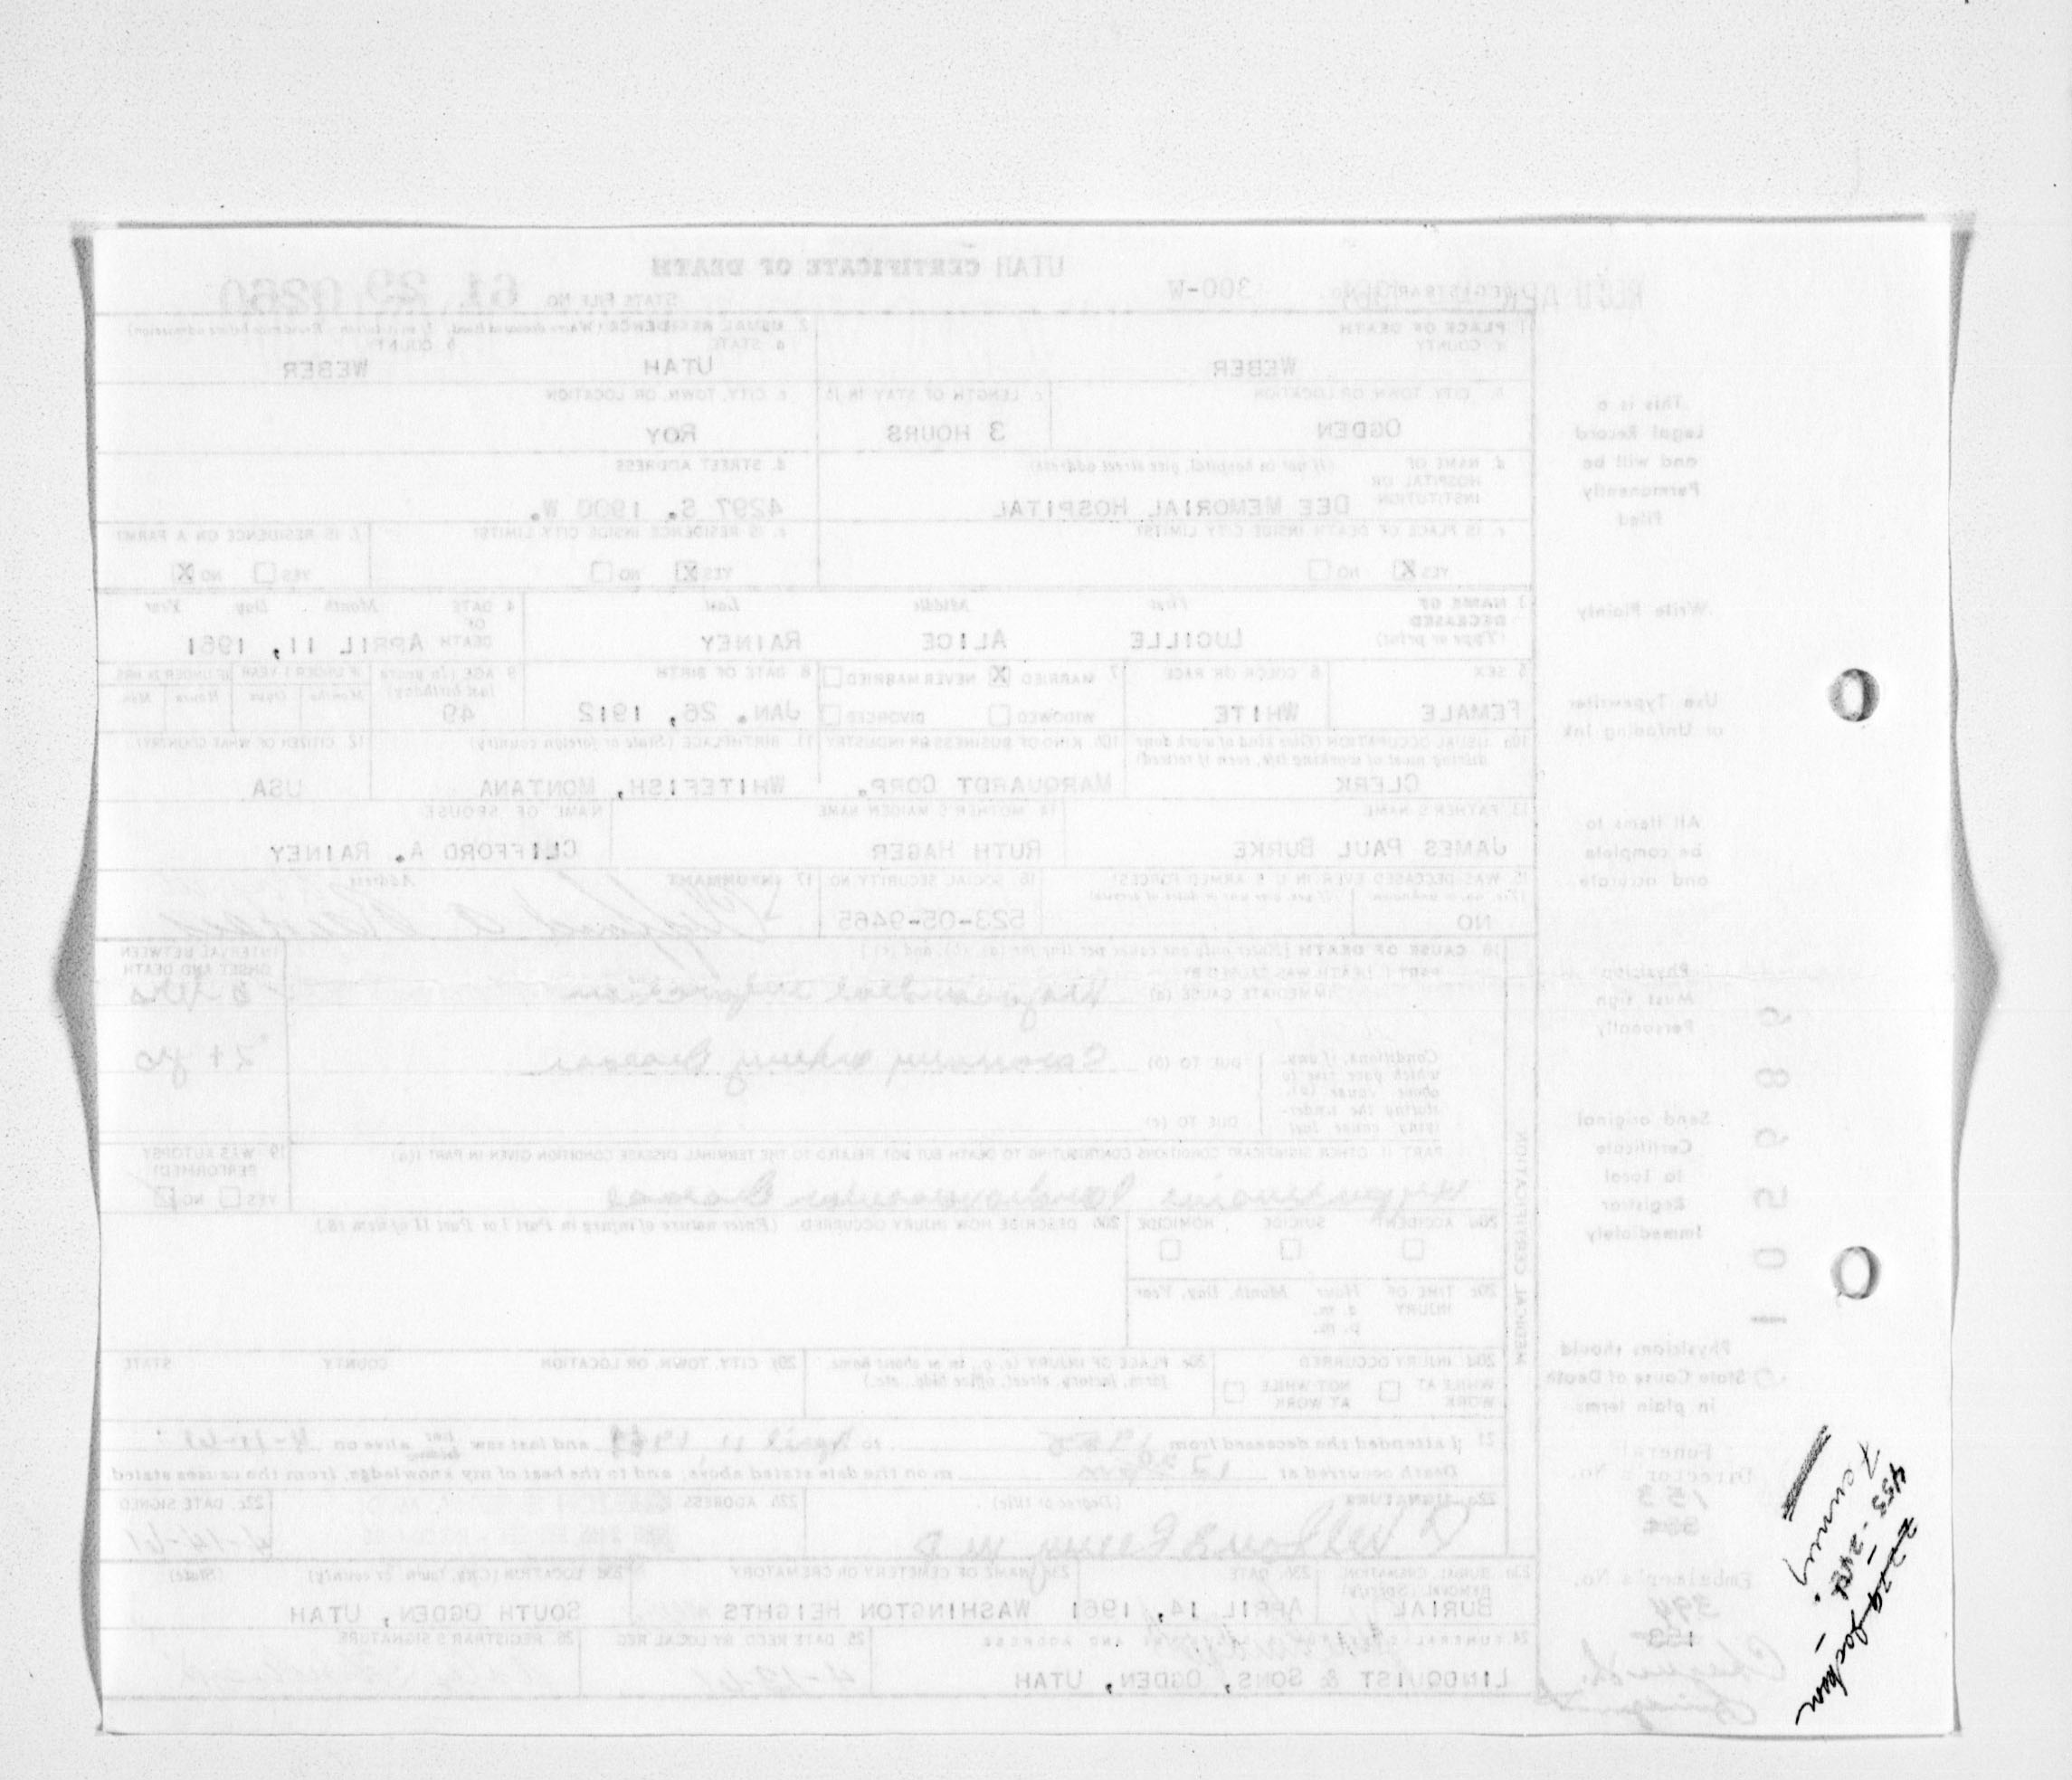 UTAH CERTIFICATE OF DEATH
REGISTRAR'S NO. 300-W
STATE FILE NO. 61 29 0280
1. PLACE OF DEATH
a. COUNTY
WEBER
2. USUAL RESIDENCE (Where deceased lived. If institution: Residence before admission)
a. STATE b. COUNTY
UTAH WEBER
b. CITY, TOWN, OR LOCATION
OGDEN
c. LENGTH OF STAY IN 1b
3 HOURS
c. CITY, TOWN, OR LOCATION
ROY
d. NAME OF HOSPITAL OR INSTITUTION (If not in hospital, give street address)
DEE MEMORIAL HOSPITAL
d. STREET ADDRESS
4297 S. 1900 W.
e. IS PLACE OF DEATH INSIDE CITY LIMITS?
YES X NO
e. IS RESIDENCE INSIDE CITY LIMITS?
YES X NO
f. IS RESIDENCE ON A FARM?
YES NO X
3. NAME OF DECEASED (Type or print)
First Middle Last
LUCILLE ALICE RAINEY
4. DATE OF DEATH Month Day Year
APRIL 11, 1961
5. SEX
FEMALE
6. COLOR OR RACE
WHITE
7. MARRIED X NEVER MARRIED
WIDOWED DIVORCED
8. DATE OF BIRTH
JAN. 26, 1912
9. AGE (In years last birthday)
49
IF UNDER 1 YEAR IF UNDER 24 HRS.
Months Days Hours Min.
10a. USUAL OCCUPATION (Give kind of work done during most of working life, even if retired)
CLERK
10b. KIND OF BUSINESS OR INDUSTRY
MARQUARDT CORP.
11. BIRTHPLACE (State or foreign country)
WHITEFISH, MONTANA
12. CITIZEN OF WHAT COUNTRY?
USA
13. FATHER'S NAME
JAMES PAUL BURKE
14. MOTHER'S MAIDEN NAME
RUTH HAGER
NAME OF SPOUSE
CLIFFORD A. RAINEY
15. WAS DECEASED EVER IN U.S. ARMED FORCES?
(Yes, no, or unknown) (If yes, give war or dates of service)
NO
16. SOCIAL SECURITY NO.
523-05-9465
17. INFORMANT Address
18. CAUSE OF DEATH [Enter only one cause per line for (a), (b), and (c).]
PART I. DEATH WAS CAUSED BY:
IMMEDIATE CAUSE (a) Myocardial infarction
INTERVAL BETWEEN ONSET AND DEATH
Conditions, if any, which gave rise to above cause (a), stating the underlying cause last
DUE TO (b) Coronary artery disease
2+ yrs
DUE TO (c)
PART II. OTHER SIGNIFICANT CONDITIONS CONTRIBUTING TO DEATH BUT NOT RELATED TO THE TERMINAL DISEASE CONDITION GIVEN IN PART I(a)
Hypertensive Cardiovascular Disease
19. WAS AUTOPSY PERFORMED?
YES NO
20a. ACCIDENT SUICIDE HOMICIDE
20b. DESCRIBE HOW INJURY OCCURRED. (Enter nature of injury in Part I or Part II of item 18.)
20c. TIME OF INJURY Hour Month, Day, Year
a. m.
p. m.
20d. INJURY OCCURRED
WHILE AT WORK NOT WHILE AT WORK
20e. PLACE OF INJURY (e. g., in or about home, farm, factory, street, office bldg., etc.)
20f. CITY, TOWN, OR LOCATION COUNTY STATE
21. I attended the deceased from 1955 to April 11, 1961 and last saw her him alive on 4-11-61
Death occurred at m on the date stated above, and to the best of my knowledge, from the causes stated.
22a. SIGNATURE (Degree or title)
22b. ADDRESS
22c. DATE SIGNED
4-14-61
23a. BURIAL, CREMATION, REMOVAL (Specify)
BURIAL
23b. DATE
APRIL 14, 1961
23c. NAME OF CEMETERY OR CREMATORY
WASHINGTON HEIGHTS
23d. LOCATION (City, town, or county) (State)
SOUTH OGDEN, UTAH
24. FUNERAL DIRECTOR'S SIGNATURE AND ADDRESS
LINDQUIST & SONS, OGDEN, UTAH
25. DATE RECD. BY LOCAL REG.
26. REGISTRAR'S SIGNATURE
MEDICAL CERTIFICATION
This is a
Legal Record
and will be
Permanently
Filed
Write Plainly
Use Typewriter
or Unfading Ink
All items to
be complete
and accurate
Physician
Must sign
Personally
Send original
Certificate
to Local
Registrar
Immediately
Physicians should
State Cause of Death
in plain terms
Funeral
Director's No.
153
Embalmer's No.
394
153